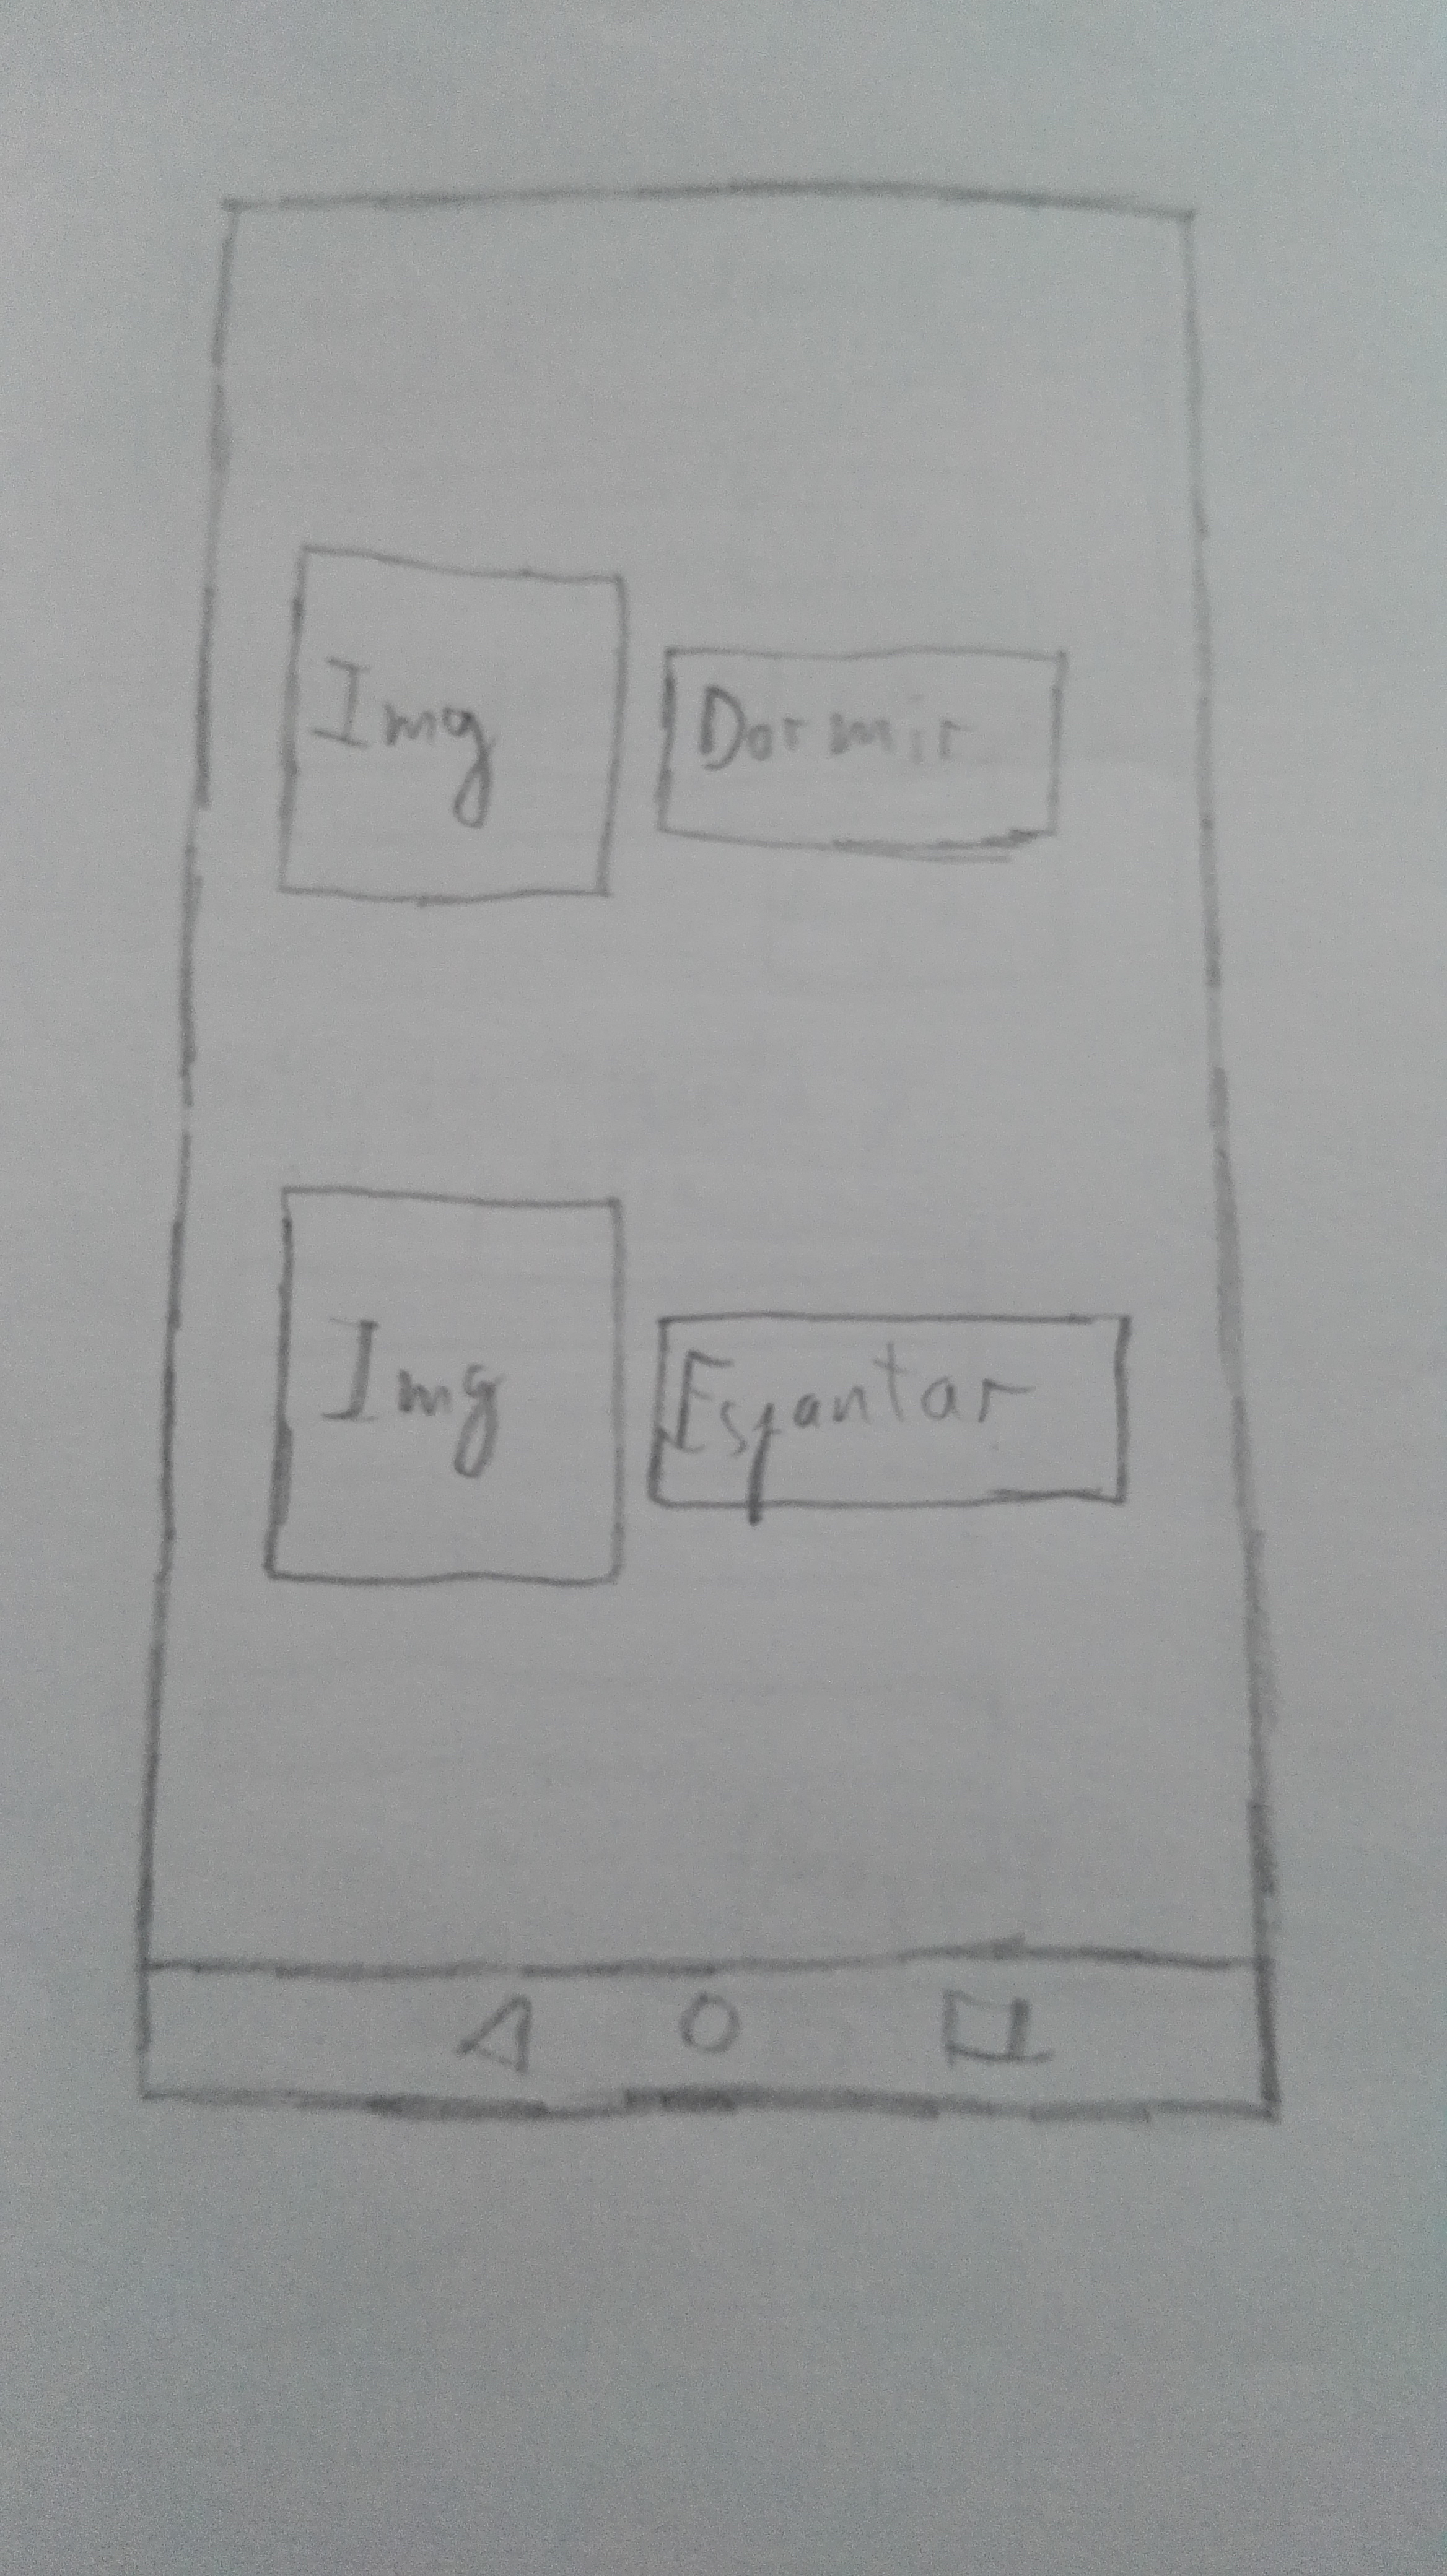 Img
Dormir
Img
Espantar